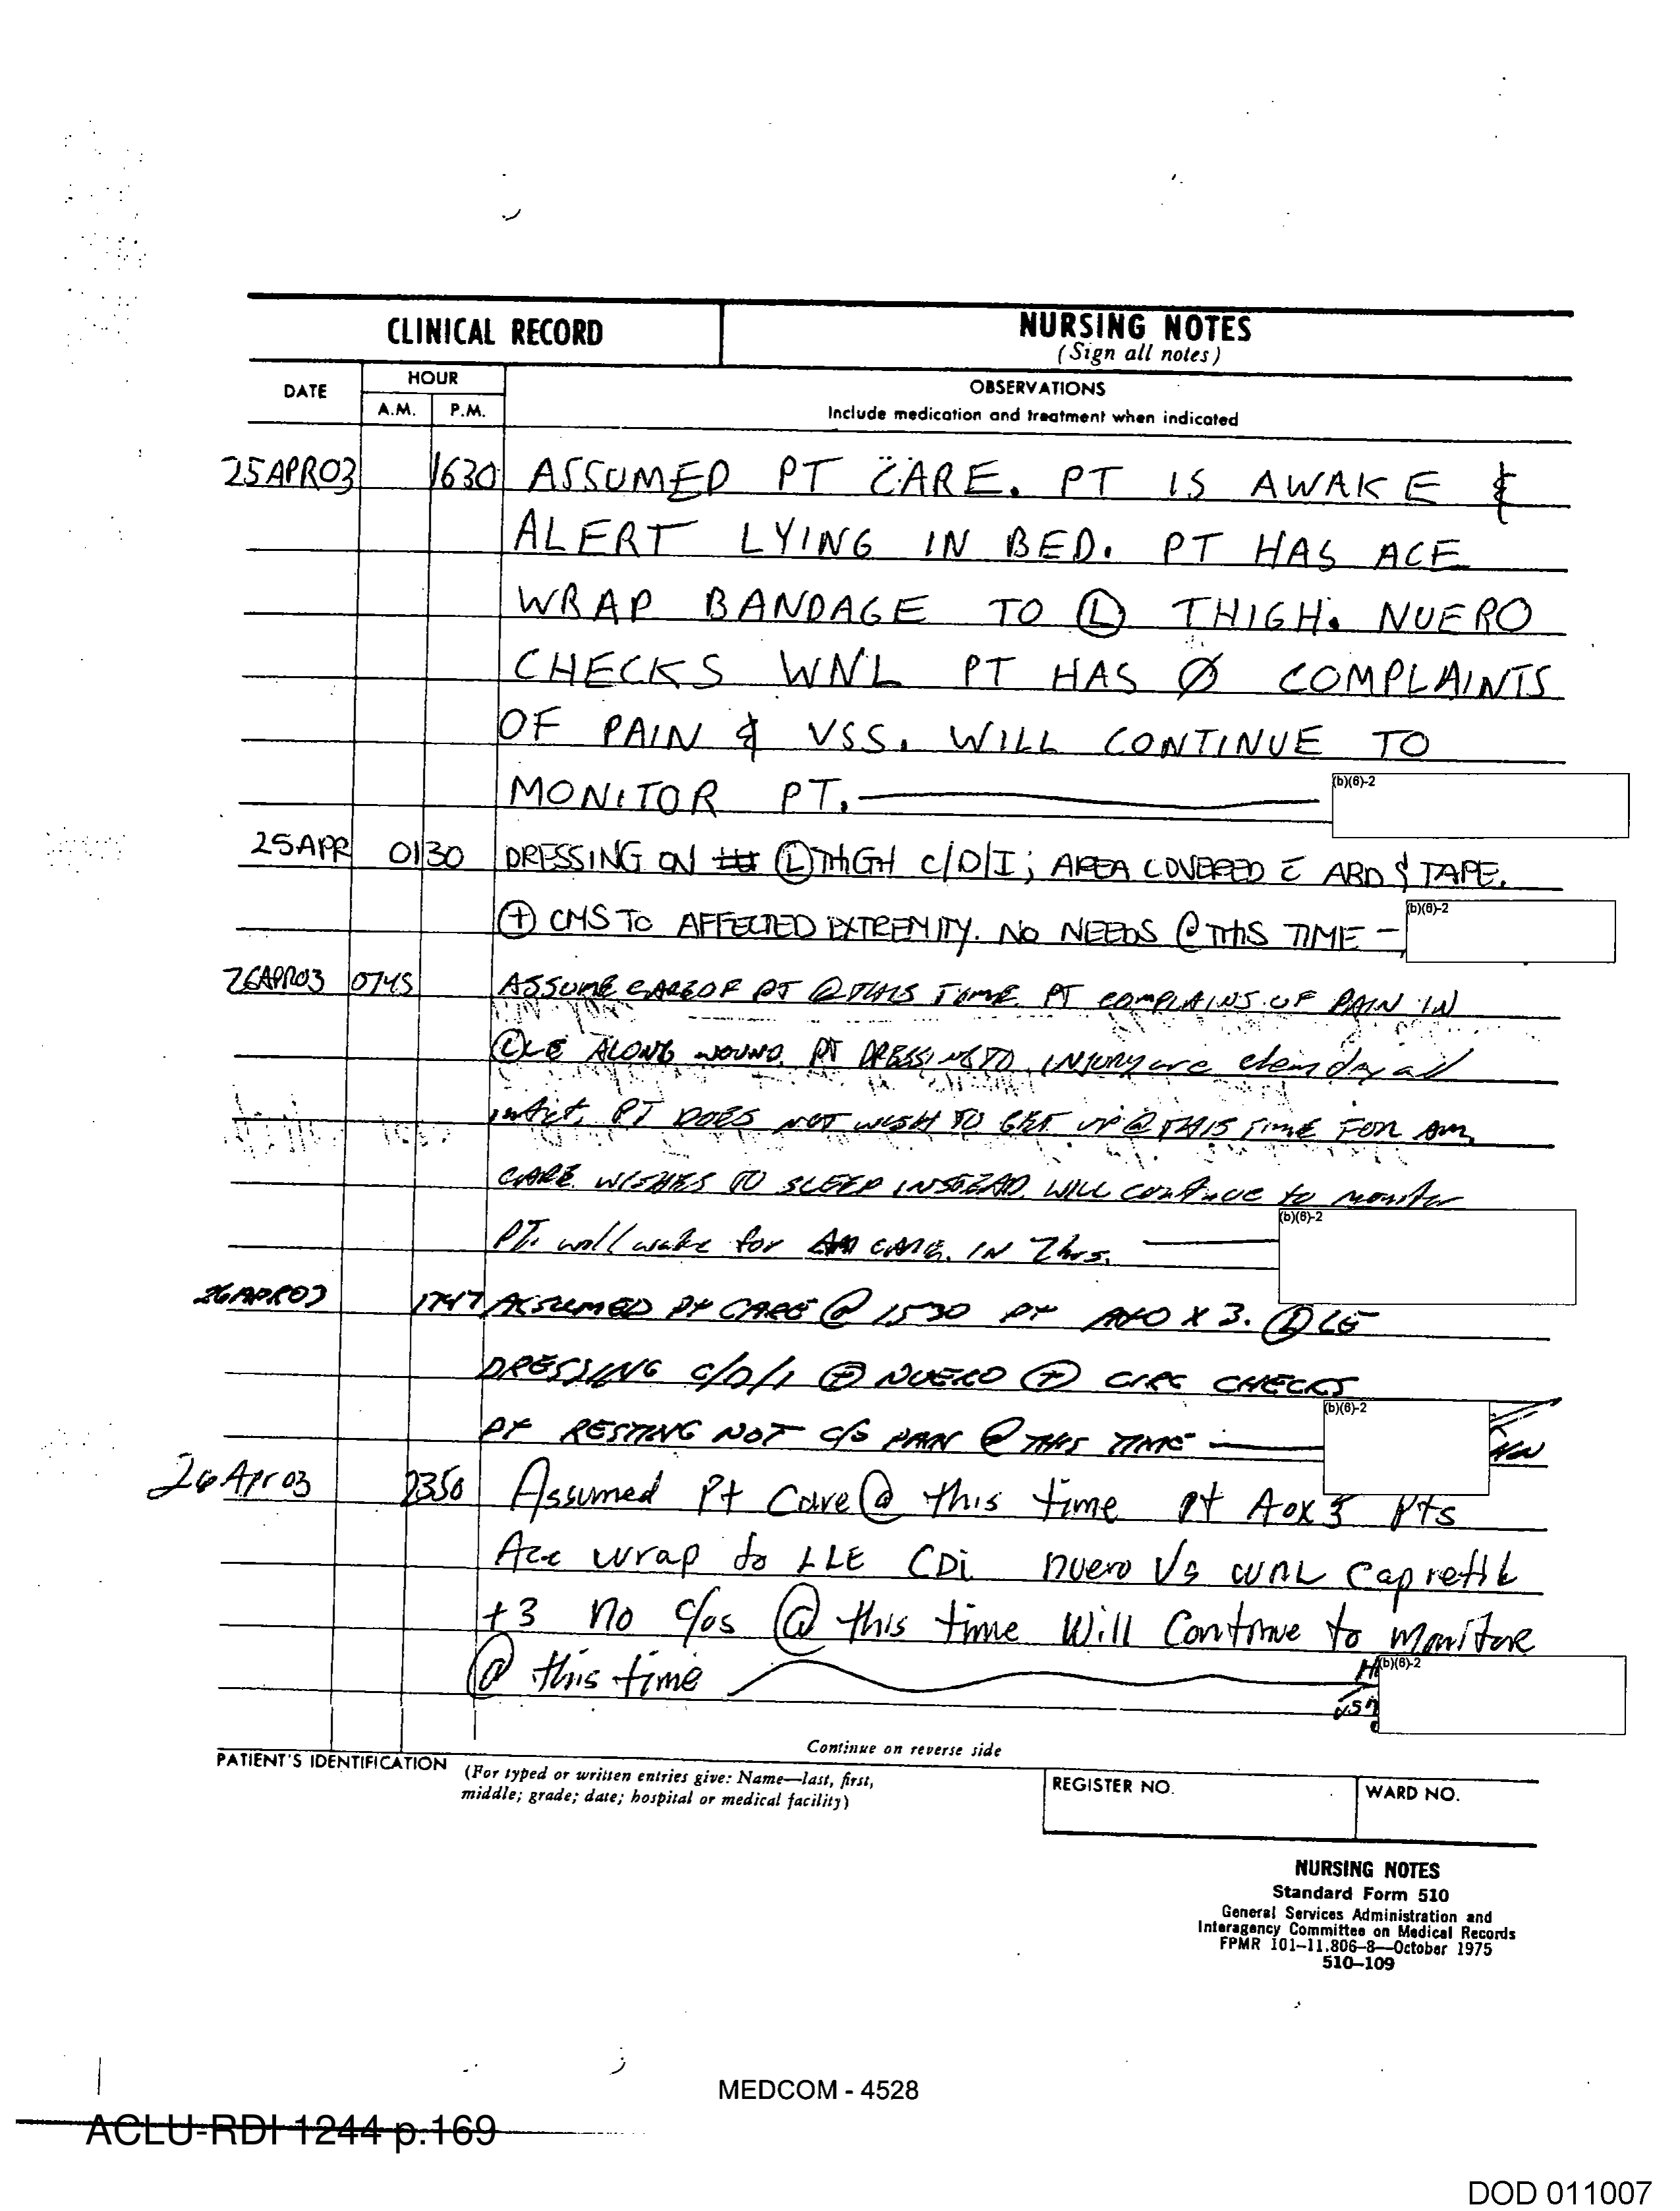 CLINICAL RECORD
NURSING NOTES
(Sign all notes)
DATE
HOUR
A.M.
P.M.
OBSERVATIONS
Include medication and treatment when indicated
25APR03 1630 ASSUMED PT CARE. PT IS AWAKE &
ALERT LYING IN BED. PT HAS ACE
WRAP BANDAGE TO Ⓛ THIGH. NUERO
CHECKS WNL PT HAS Ø COMPLAINTS
OF PAIN & VSS. WILL CONTINUE TO
MONITOR PT.
(b)(6)-2
25APR 0130 DRESSING ON Ⓛ THIGH C/D/I; AREA COVERED c̄ ABD & TAPE.
⊕ CMS TO AFFECTED EXTREMITY. NO NEEDS @ THIS TIME –
(b)(6)-2
26APR03 0745 ASSUME CARE OF PT @ THIS TIME PT COMPLAINS OF PAIN IN
Ⓛ LE ALONG WOUND. PT DRESSING TO INJURY are clean dry all
intact. PT DOES NOT WISH TO GET UP @ THIS TIME FOR AM
CARE WISHES TO SLEEP INSTEAD. WILL continue to monitor
PT. will wake for AM CARE. IN 2hrs.
(b)(6)-2
26APR03 1747 ASSUMED PT CARE @ 1530 PT A+O X 3. Ⓛ LE
DRESSING C/D/I ⊕ NUERO ⊕ CIRC CHECKS
PT RESTING NOT C/O PAIN @ THIS TIME
(b)(6)-2
26Apr03 2350 Assumed Pt Care @ this time pt AOX3 Pts
Ace wrap to LLE CDi nuero Vs WNL Cap refill
+3 No c/os @ this time Will Continue to monitor
@ this time
(b)(6)-2
Continue on reverse side
PATIENT'S IDENTIFICATION
(For typed or written entries give: Name—last, first,
middle; grade; date; hospital or medical facility)
REGISTER NO.
WARD NO.
NURSING NOTES
Standard Form 510
General Services Administration and
Interagency Committee on Medical Records
FPMR 101–11.806–8—October 1975
510–109
MEDCOM - 4528
ACLU-RDI 1244 p.169
DOD 011007